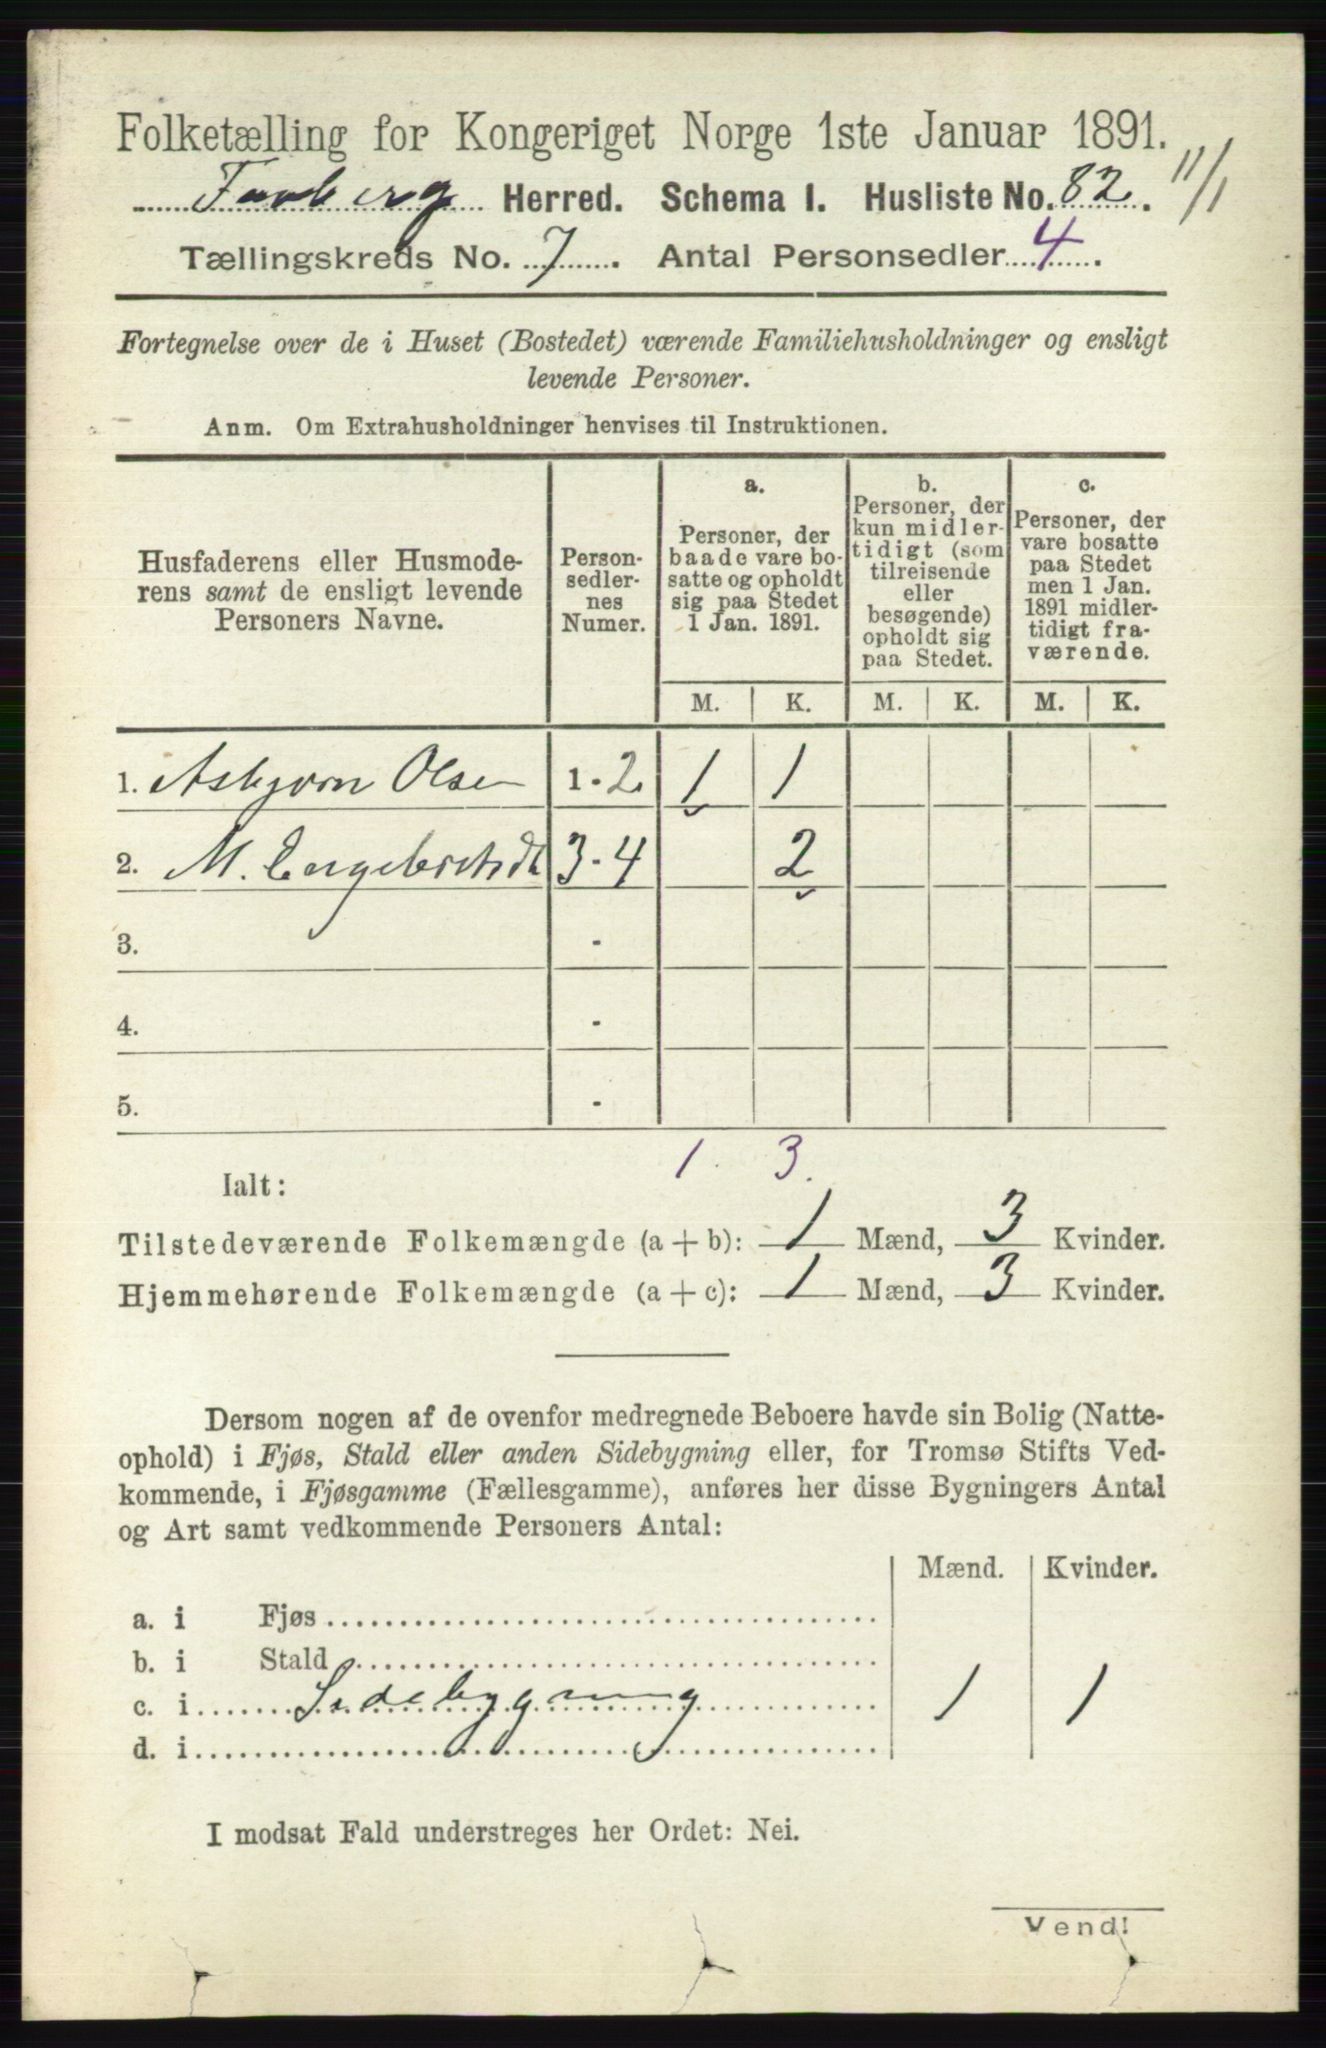 Folketælling for Kongeriget Norge 1ste Januar 1891.
Faaberg Herred. Schema I. Husliste No. 82. 11/1
Tællingskreds No. 7. Antal Personsedler 4.
Fortegnelse over de i Huset (Bostedet) værende Familiehusholdninger og ensligt
levende Personer.
Anm. Om Extrahusholdninger henvises til Instruktionen.
Husfaderens eller Husmode-
rens samt de ensligt levende
Personers Navne.
Person-
sedler-
nes
Numer.
a.
Personer, der
baade vare bo-
satte og opholdt
sig paa Stedet
1 Jan. 1891.
b.
Personer, der
kun midler-
tidigt (som
tilreisende
eller
besøgende)
opholdt sig
paa Stedet.
c.
Personer, der
vare bosatte
paa Stedet
men 1 Jan.
1891 midler-
tidigt fra-
værende.
M. K. M. K. M. K.
1. Asbjørn Olsen 1-2. 1 1
2. M. Engebretsdt 3-4 2
3. -
4. -
5. -
1. 3.
Ialt:
Tilstedeværende Folkemængde (a + b): 1 Mænd, 3 Kvinder.
Hjemmehørende Folkemængde (a + c): 1 Mænd, 3 Kvinder.
Dersom nogen af de ovenfor medregnede Beboere havde sin Bolig (Natte-
ophold) i Fjøs, Stald eller anden Sidebygning eller, for Tromsø Stifts Ved-
kommende, i Fjøsgamme (Fællesgamme), anføres her disse Bygningers Antal
og Art samt vedkommende Personers Antal:
Mænd. Kvinder.
a. i Fjøs
b. i Stald
c. i Sidebygning 1 1
d. i
I modsat Fald understreges her Ordet: Nei.
Vend!